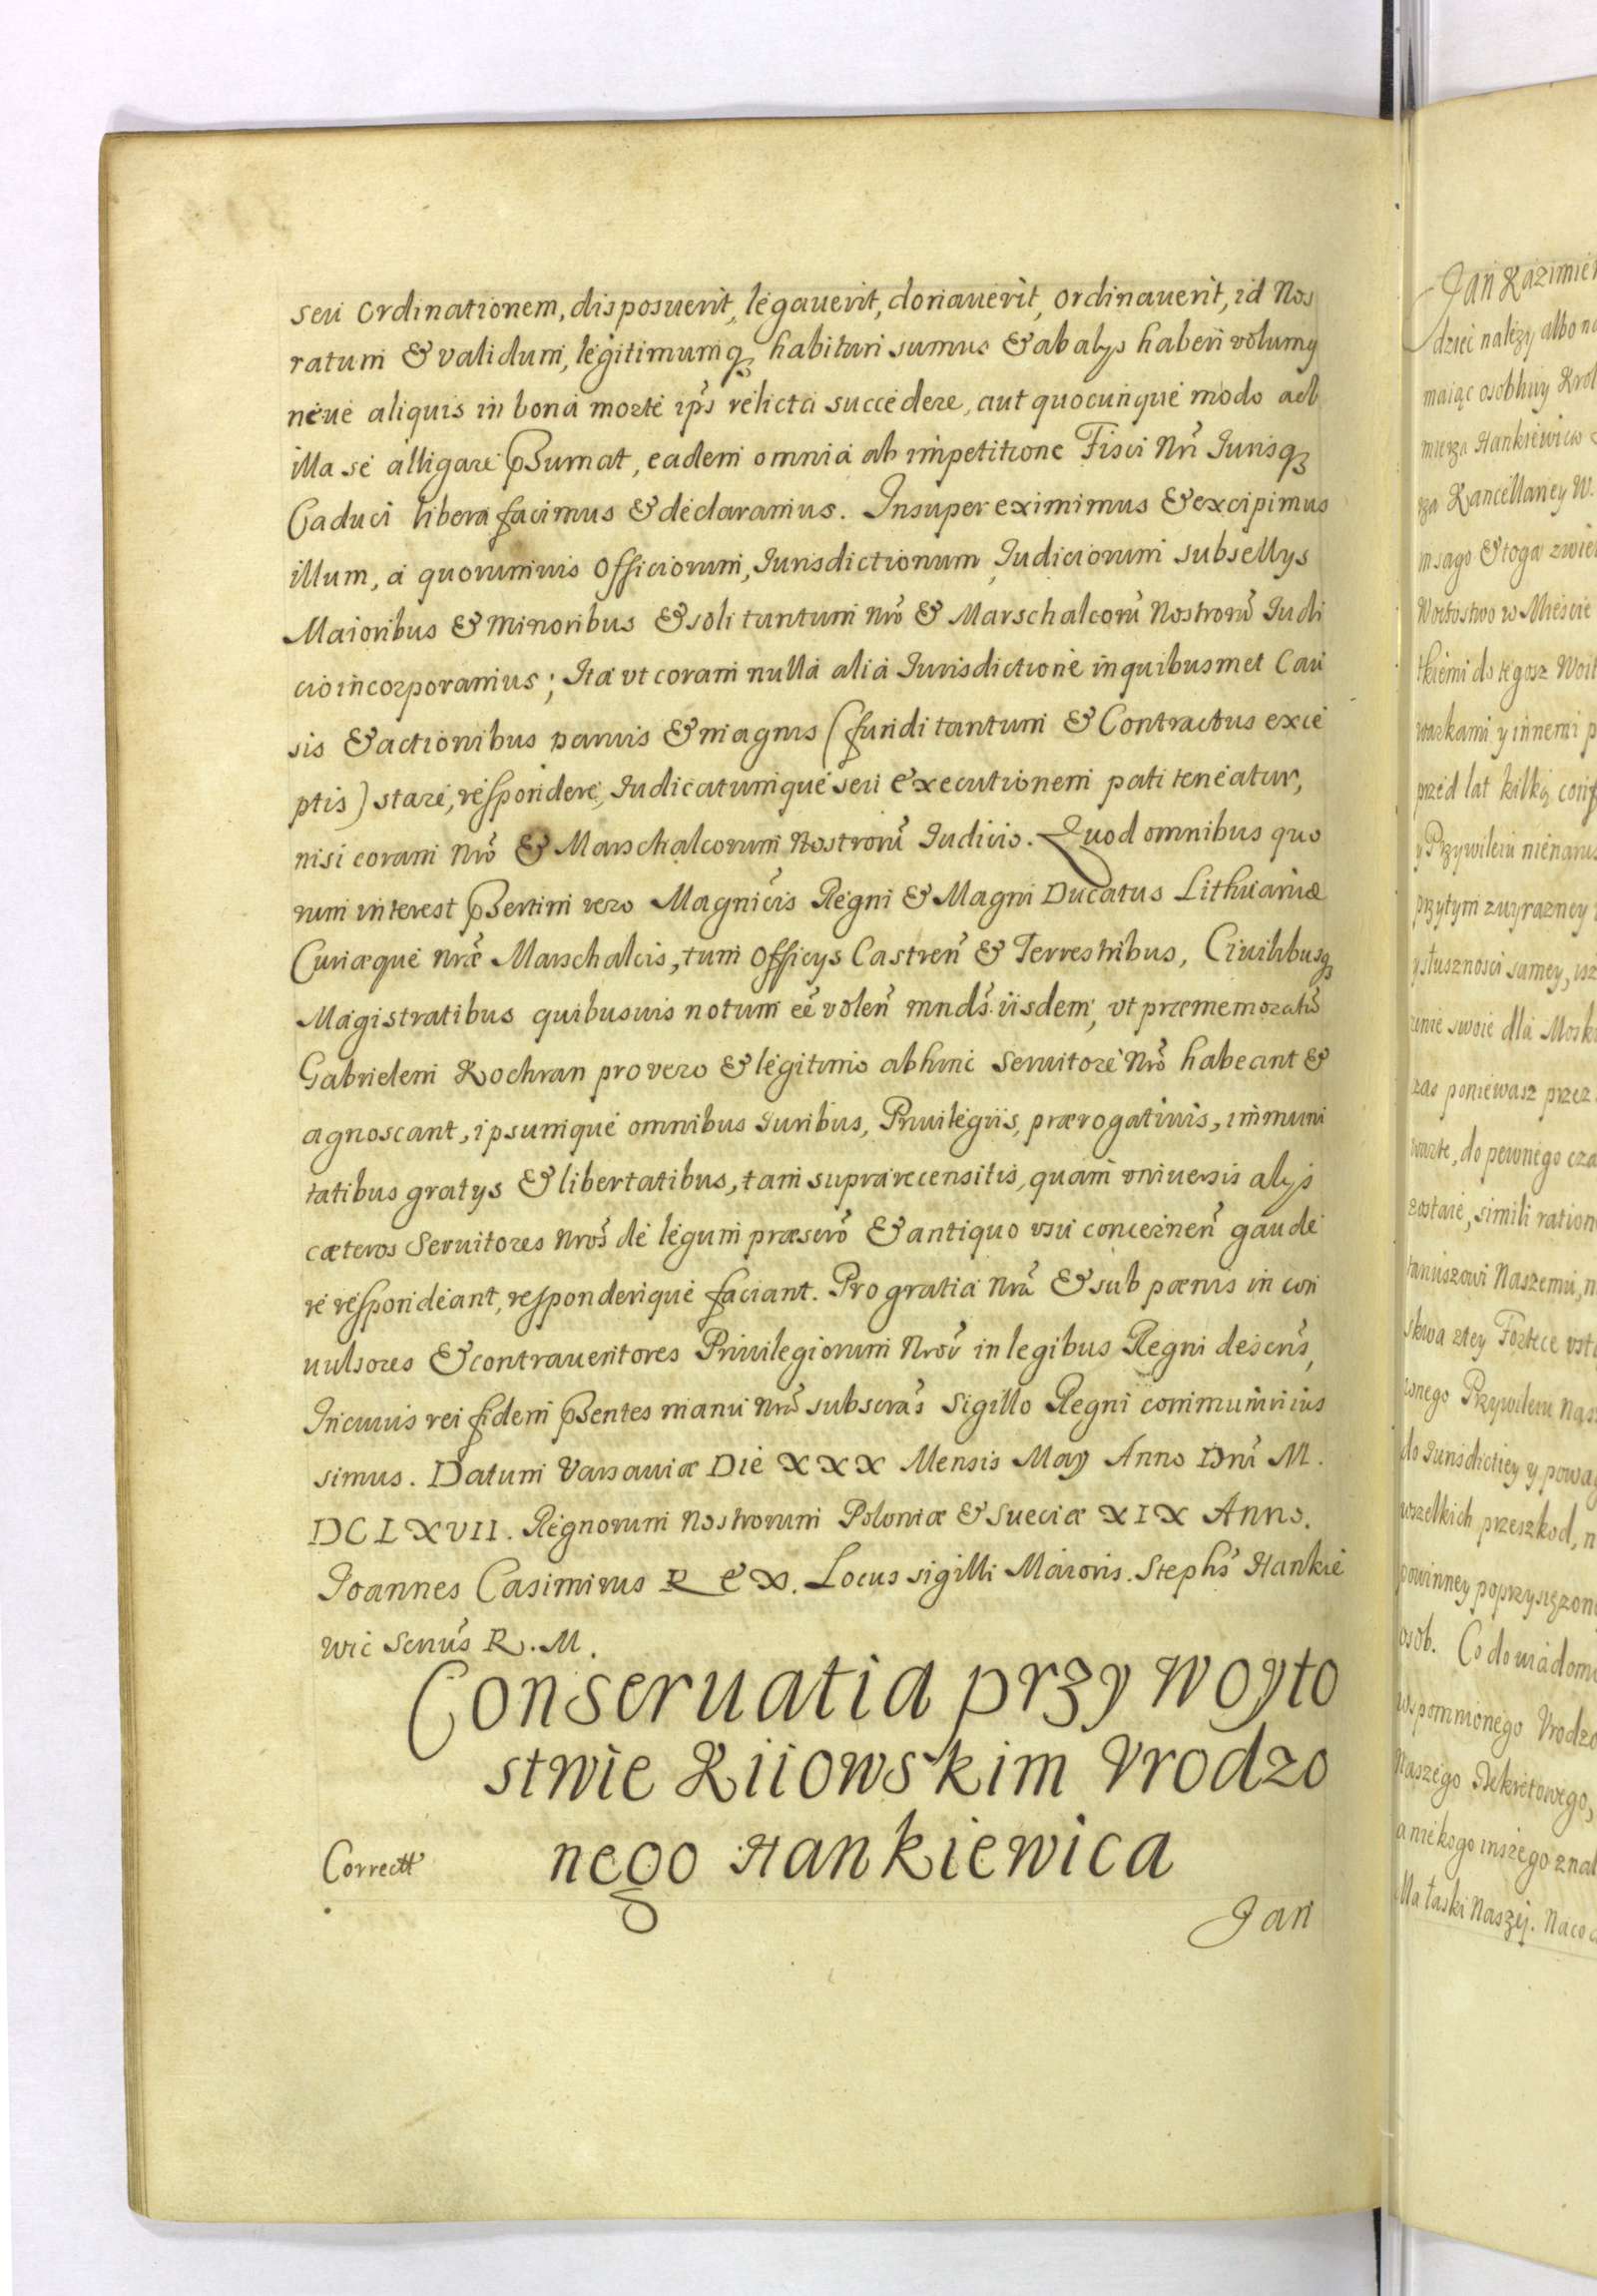 seu Ordinationem, disposuerit, legauerit, donauerit, ordinauerit, id Nos
ratum & validum, legitimumq₃ habituri sumus & ab alys haberi volumy
neue aliquis in bona morte ip̃s relicta succedere, aut quocunque modo ad
illa se alligare p̃sumat, eadem omnia ab impetitione Fisci Nr̃i Iurisq₃
Caduci libera facimus & declaramus. Insuper eximimus & excipimus
illum, a quorumuis Officiorum, Iurisdictionum, Iudiciorum subsellys
Maioribus & Minoribus & soli tantum Nr̃o & Marschalcorũ Nostrorũ Iudi
cio incorporamus; Ita vt coram nulla alia Iurisdictione in quibusmet Cau
sis & actionibus paruis & magnis (fundi tantum & Contractus exce
ptis) stare, respondere, Iudicatumque seu executionem pati teneatur,
nisi coram Nr̃o & Marschalcorum Nostrorũ Iudicio. Quod omnibus quo
rum interest p̃sertim vero Magnicis Regni & Magni Ducatus Lithuaniæ
Curiæque Nr̃æ Marschalcis, tum Officys Castreñ & Terrestribus, Ciuilibusq₃
Magistratibus quibusuis notum ẽe voleñ mnds̃ iisdem, vt præmemoratũ
Gabrielem Kochran pro vero & legitimo abhinc Seruitore Nr̃o habeant &
agnoscant, ipsumque omnibus Iuribus, Priuilegiis, prærogatiuis, immuni
tatibus gratys & libertatibus, tam suprarecensitis, quam vniuersis alys
cæteros Seruitores Nr̃os de legum præscr̃o & antiquo vsu concerneñ gaude
re respondeant, responderique faciant. Pro gratia Nr̃a & sub pænis in con
uulsores & contrauentores Priuilegiorum Nr̃oũ in legibus Regni descr̃is,
In cuius rei fidem p̃sentes manu Nr̃a subscrãs Sigillo Regni communiri ius
simus. Datum Varsauiæ Die XXX Mensis May Anno Dñi M.
DCLXVII. Regnorum Nostrorum Poloniæ & Sueciæ XIX Anno.
Joannes Casimirus Rex. Locus sigilli Maioris. Stephs̃ Hankie
wic Scrius̃ R. M.
Conseruatia przy Woyto
stwie Kiiowskim Vrodzo
nego Hankiewica
Correctt
Jan
Jan Kazimier
dzieć należy albo na
maiąc osobliwy Krol
Hankiewica
Kancellaney W.
in sago & toga
w Mieście
tkiemi do tegosz Woit
y innemi p
przed lat kilką
y Przywileiu
przytym
y słusznosci samey, isz
swoie dla Mosk
zas poniewasz przez
do pewnego cza
zostaie, simili ration
Naszemu, n
skwa ztey Fortece vst
Przywileiu Nas
do Iurisdictiey y powa
wszelkich przeszkod, n
powinney poprzysiężon
osob. Co do wiadom
wspomnionego Vrodzo
Naszego Dekretowego,
a nie kogo inszego znal
Dla łaski Naszey. Na co